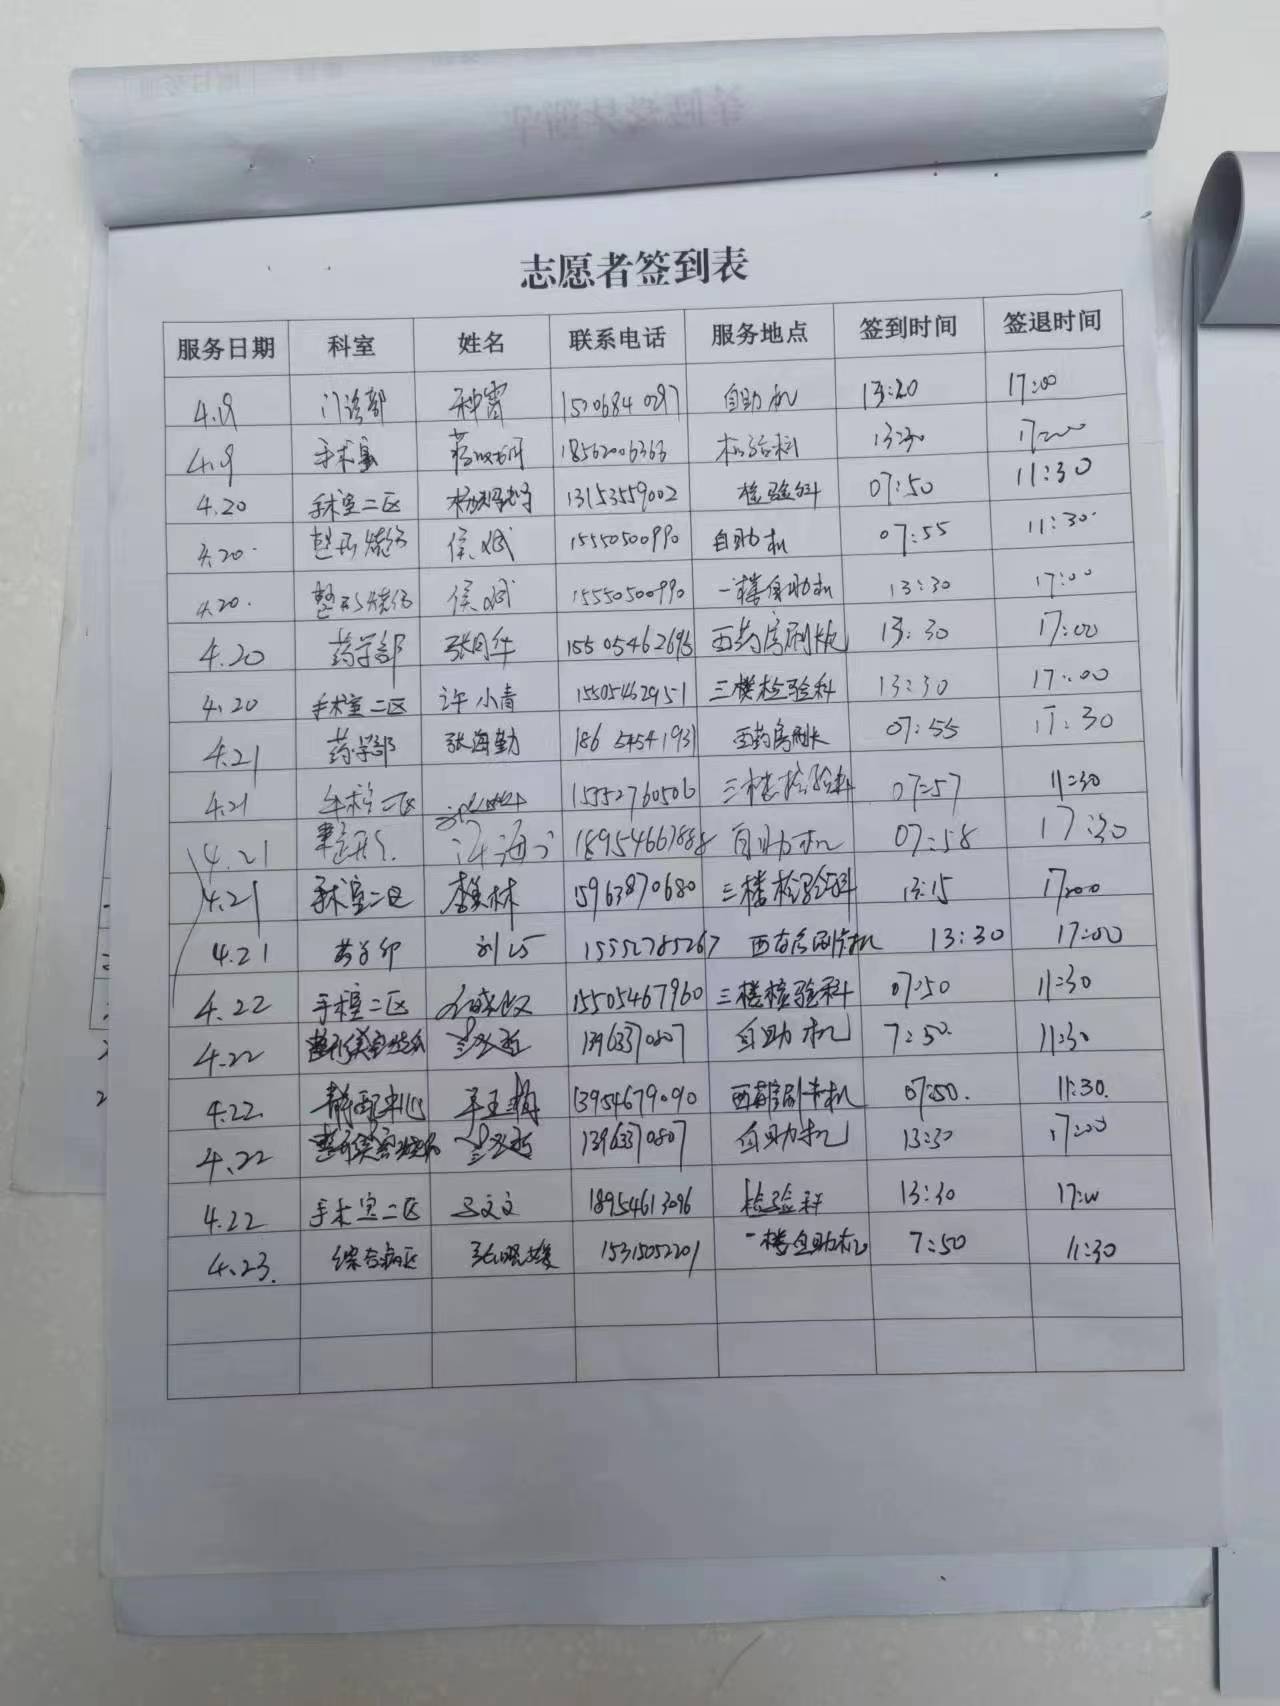 志愿者签到表
服务日期 科室 姓名 联系电话 服务地点 签到时间 签退时间
4.19 门诊部 种霄 15206840297 自助机 13:20 17:00
4.19 手术室 18562006363 检验科 13:30 17:00
4.20 手术室二区 13153559002 检验科 07:50 11:30
4.20. 整形烧伤 侯斌 15550500990 自助机 07:55 11:30.
4.20. 整形烧伤 侯斌 15550500990 一楼自助机 13:30 17:00
4.20 药学部 张同华 15505462693 西药房刷机 13:30 17:00
4.20 手术室二区 许小青 15505462951 三楼检验科 13:30 17:00
4.21 药学部 张海勤 186 5454 1931 西药房刷卡 07:55 17:30
4.21 手术室二区 15552760506 三楼检验科 07:57 11:30
4.21 整形 18954667888 自助机 07:58 17:30
4.21 手术室二区 李美林 15963870680 三楼检验科 13:15 17:00
4.21 药学部 刘巧 15552785267 西药房刷卡机 13:30 17:00
4.22 手术室二区 15505467960 三楼检验科 07:50 11:30
4.22 整形美容烧伤 13963370807 自助机 7:50. 11:30
4.22. 静配中心 13954679090 西药房刷卡机 07:50. 11:30.
4.22 整形美容烧伤 13963370807 自助机 13:30 17:00
4.22 手术室二区 马文文 18954613096 检验科 13:30 17:00
4.23. 综合病区 15315052201 一楼自助机 7:50 11:30